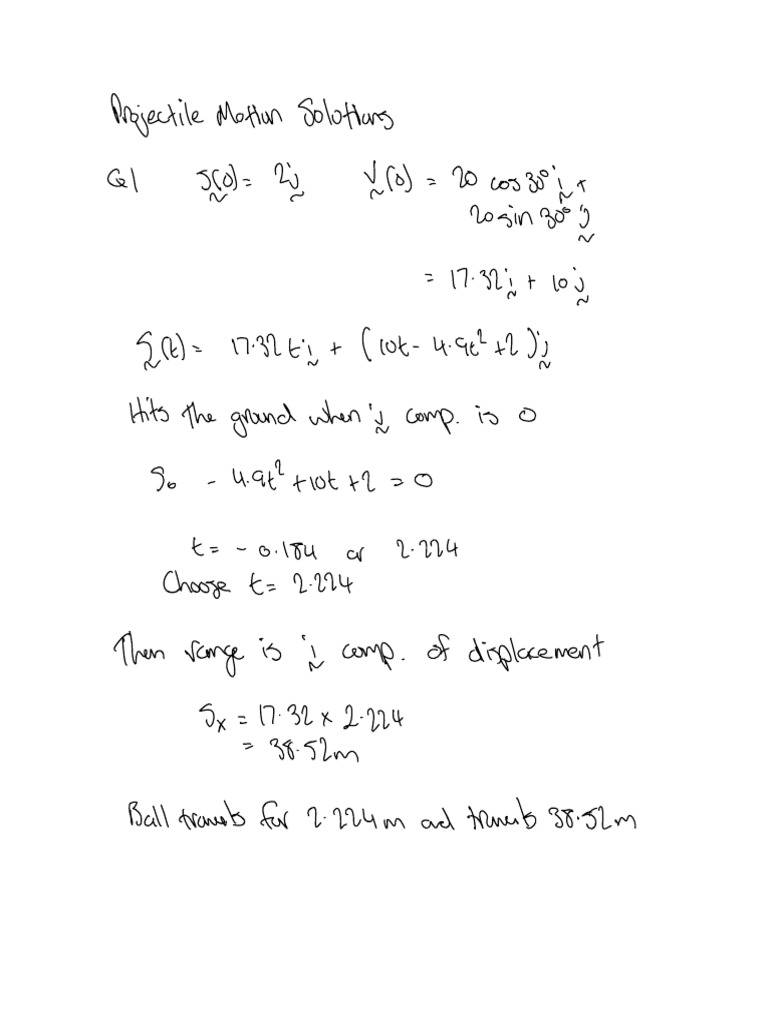 Projectile Motion Solutions
Q1 s(0) = 2j v(0) = 20 cos 30° i +
20 sin 30° j
= 17.32i + 10j
s(t) = 17.32 t i + (10t - 4.9t² + 2)j
Hits the ground when j comp. is 0
So - 4.9t² + 10t + 2 = 0
t = - 0.184 or 2.224
Choose t = 2.224
Then range is i comp. of displacement
Sx = 17.32 x 2.224
= 38.52m
Ball travels for 2.224m and travels 38.52m